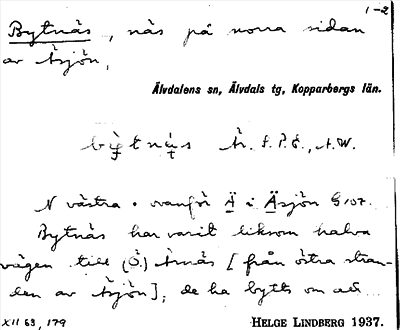 1-2
Bytnäs, näs på norra sidan
av Äsjön,
Älvdalens sn, Älvdals tg, Kopparbergs län.
N västra . ovanför Ä i Äsjön G107.
Bytnäs har varit liksom halva
vägen till (Ö) Ärnäs [från östra stran-
den av Äsjön]; de ha bytts om att...
XII 63, 179
HELGE LINDBERG 1937.